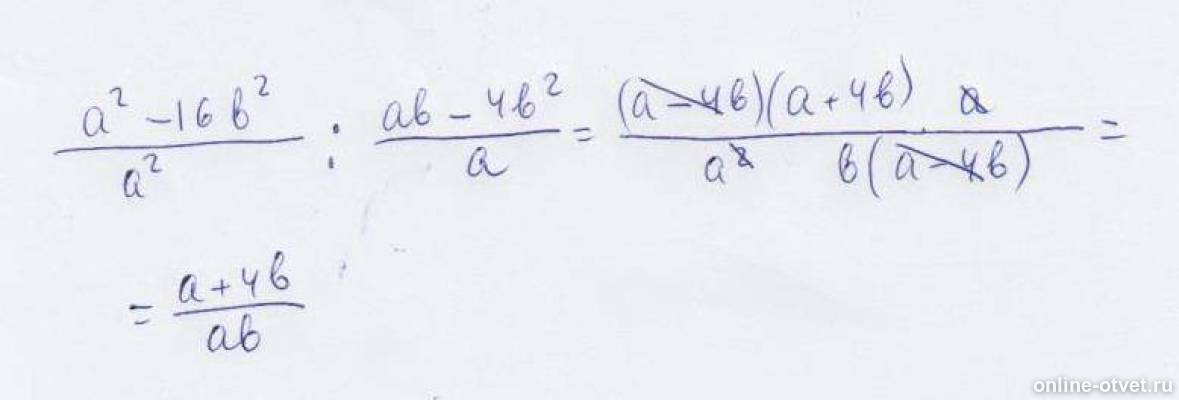 (a² - 16b²)/a² : (ab - 4b²)/a = ((a - 4b)(a + 4b) a)/(a² b(a - 4b)) =
= (a + 4b)/(ab)
online-otvet.ru